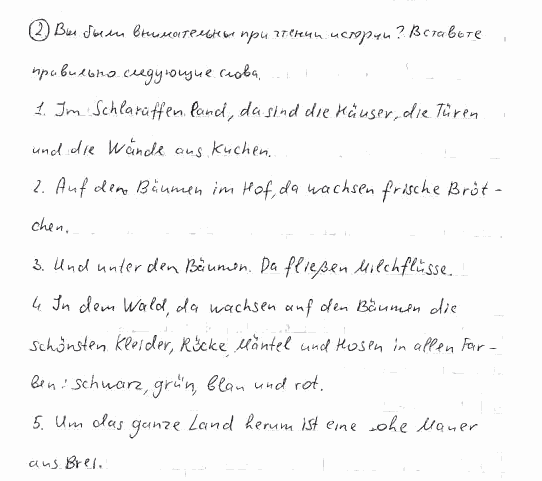 ② Вы были внимательны при чтении истории? Вставьте
правильно следующие слова.
1. Im Schlaraffenland, da sind die Häuser, die Türen
und die Wände aus Kuchen.
2. Auf den Bäumen im Hof, da wachsen frische Bröt-
chen.
3. Und unter den Bäumen. Da fließen Milchflüsse.
4. In dem Wald, da wachsen auf den Bäumen die
schönsten Kleider, Röcke, Mäntel und Hosen in allen Far-
ben: schwarz, grün, blau und rot.
5. Um das ganze Land herum ist eine hohe Mauer
aus Brei.